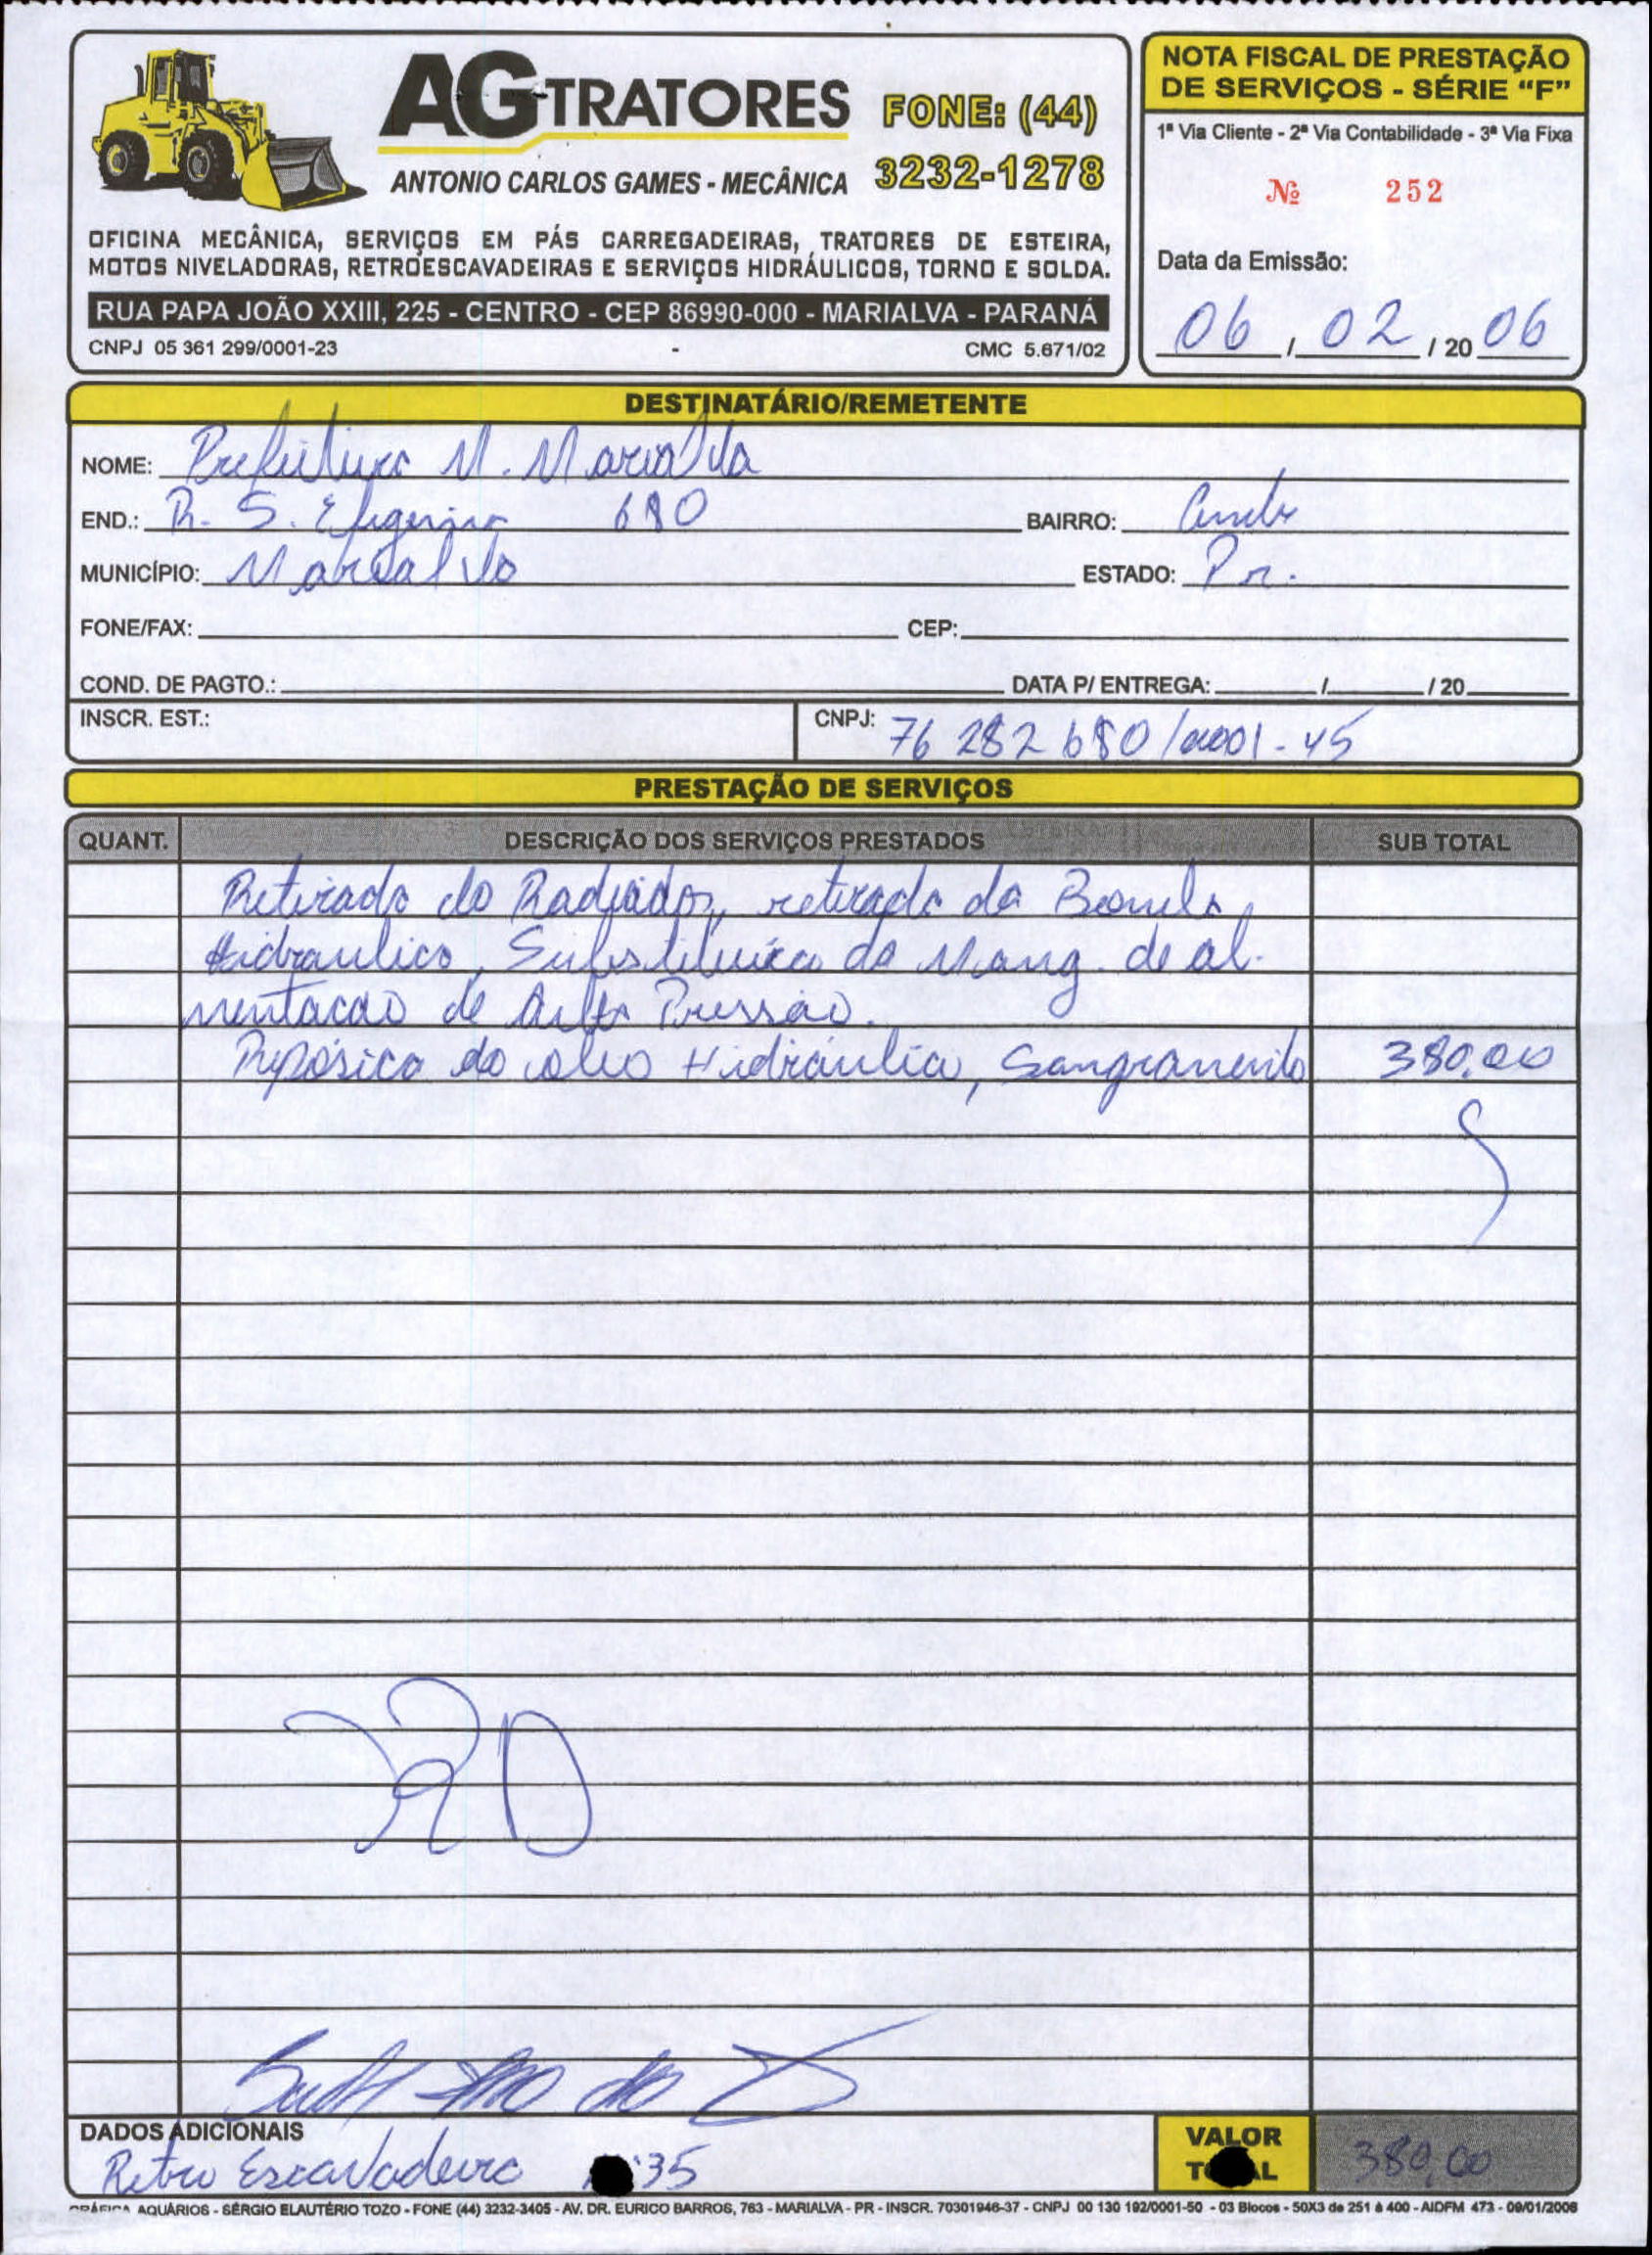 AG TRATORES
FONE: (44)
3232-1278
ANTONIO CARLOS GAMES - MECÂNICA
OFICINA MECÂNICA, SERVIÇOS EM PÁS CARREGADEIRAS, TRATORES DE ESTEIRA,
MOTOS NIVELADORAS, RETROESCAVADEIRAS E SERVIÇOS HIDRÁULICOS, TORNO E SOLDA.
RUA PAPA JOÃO XXIII, 225 - CENTRO - CEP 86990-000 - MARIALVA - PARANÁ
CNPJ 05 361 299/0001-23 - CMC 5.671/02
NOTA FISCAL DE PRESTAÇÃO
DE SERVIÇOS - SÉRIE "F"
1ª Via Cliente - 2ª Via Contabilidade - 3ª Via Fixa
Nº 252
Data da Emissão:
06 / 02 / 20 06
DESTINATÁRIO/REMETENTE
NOME: Prefeitura M. Marialva
END.: R. S. Efigenia 680 BAIRRO:
MUNICÍPIO: Marialva ESTADO: Pr.
FONE/FAX: CEP:
COND. DE PAGTO.: DATA P/ ENTREGA: / / 20
INSCR. EST.: CNPJ: 76 282 680/0001-45
PRESTAÇÃO DE SERVIÇOS
QUANT. DESCRIÇÃO DOS SERVIÇOS PRESTADOS SUB TOTAL
Retirada do Radiador, retirada da Bomba
Hidraulico, da Mang. de al-
mentacao de Alta Pressão.
do oleo Hidráulico, Sangramento 380,00
DADOS ADICIONAIS
Retro Escavadeira 35
VALOR
380,00
AQUÁRIOS - SÉRGIO ELAUTÉRIO TOZO - FONE (44) 3232-3405 - AV. DR. EURICO BARROS, 763 - MARIALVA - PR - INSCR. 70301946-37 - CNPJ 00 130 192/0001-50 - 03 Blocos - 50X3 de 251 à 400 - AIDFM 473 - 09/01/2006